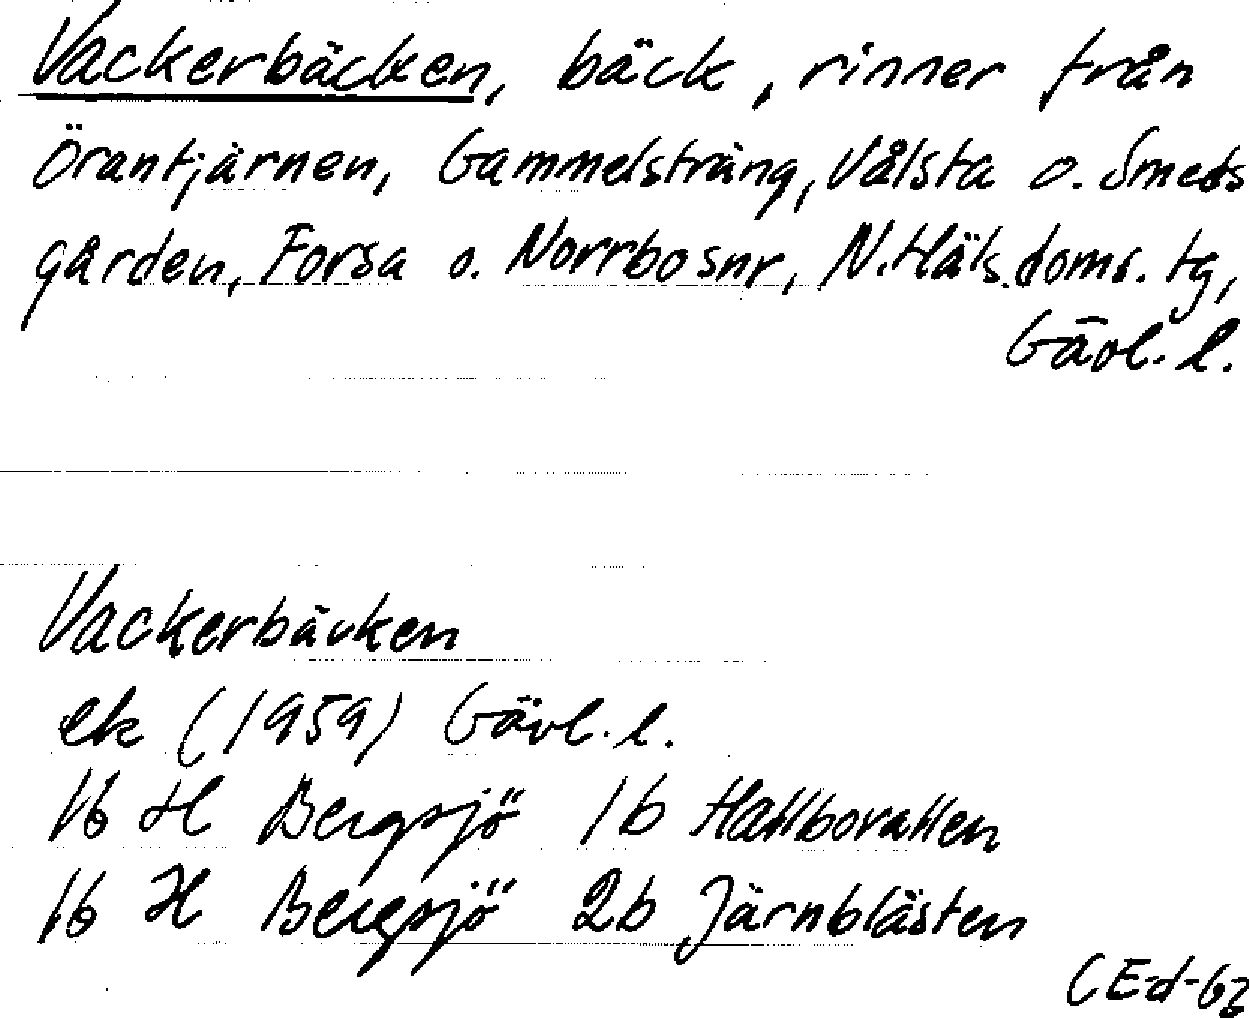 Vackerbäcken, bäck, rinner från
Örantjärnen, Gammelsträng, Vålsta o. Smeds
gården, Forsa o. Norrbo snr, N. Häls. doms. tg,
Gävl. l.
Vackerbäcken
ek (1959) Gävl. l.
16 H Bergsjö 1b Hallbovallen
16 H Bergsjö 2b Järnblästen
CEd-63